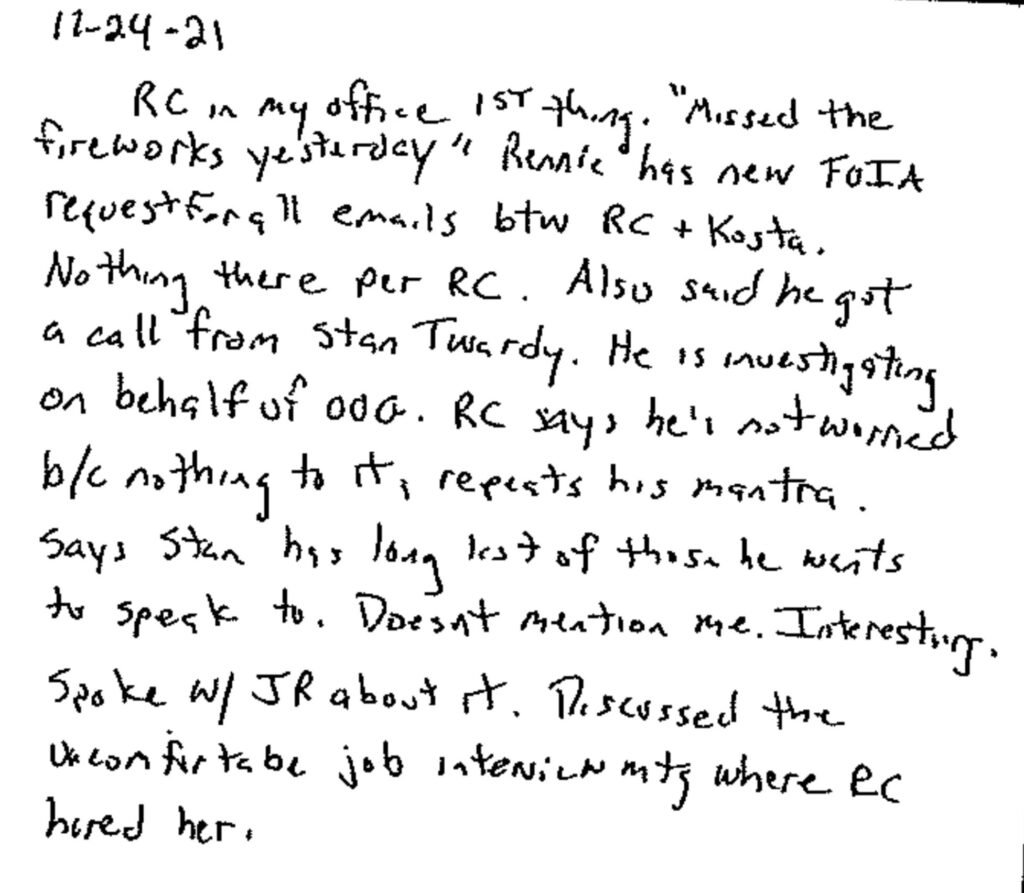 11-24-21
RC in my office 1ST thing. "Missed the
fireworks yesterday" Rennie has new FOIA
request for all emails btw RC + Kosta.
Nothing there per RC. Also said he got
a call from Stan Twardy. He is investigating
on behalf of ODG. RC says he's not worried
b/c nothing to it; repeats his mantra.
Says Stan has long list of those he wants
to speak to. Doesnt mention me. Interesting.
Spoke w/ JR about it. Discussed the
uncomfortabe job interview mtg where RC
hired her.